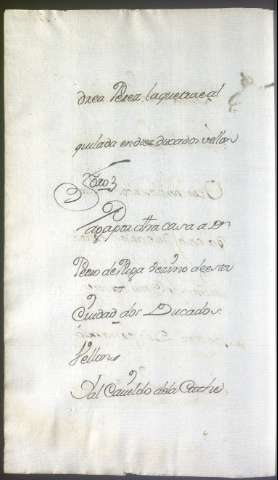 drea Perez laquetraeal
quilada en diez ducados vellon
Paga pr. otra casa a Dn
Pedro de Vega vezino de esta
Ciudad dos Ducados
Vellon
Y al Cavildo dela Cathe